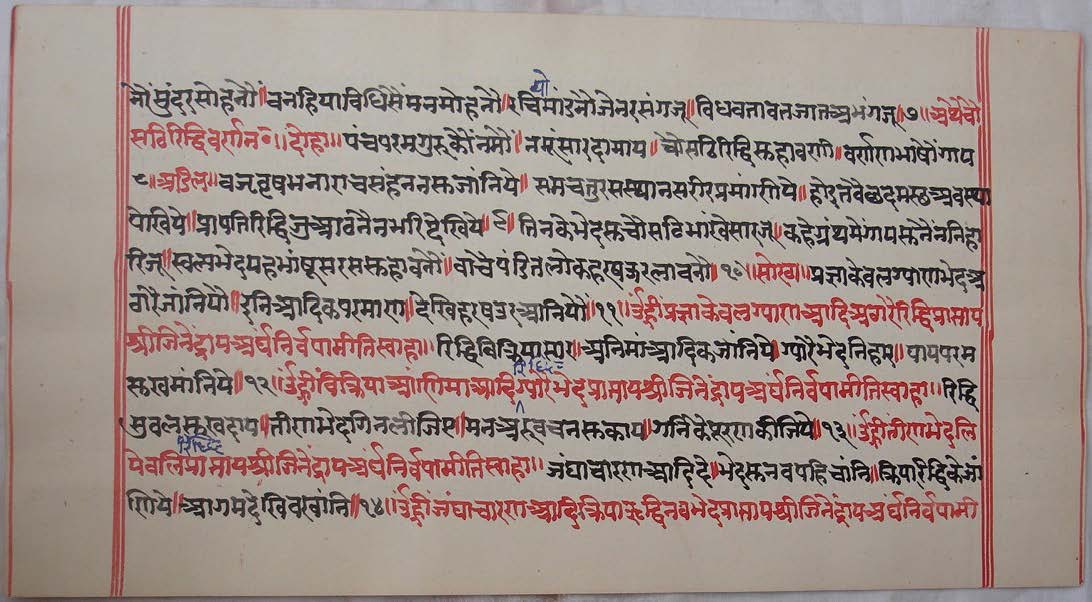 नौं सुंदर सोहनौं॥ चनहियाविधिसैं मनमोहनौ॥ रचिमाडनौ जे नर संग जू॥ विधवतावत जात अभंग जू॥७॥ अथ चौ
यो
सठि रिद्धि वर्णन॰॥ दोहा॥ पंच परम गुरु कौं नमौं॥ नसुं सारदा माय॥ चौसठि रिद्धि सु हा वरणौ॥ वर्णण भाषौं गाय
८॥ अडिल॥ वज्र वृषभ नाराच संहनन सु जांनिये॥ सम चतुर सस्थान सरीर प्रमांणीये॥ होइ तवै छदमस्थ अवस्था
पेखिये॥ प्रापति रिद्धि जु आवनै न भरि देखिये॥९॥ तिनके भेद सु चौसठि भांखे सार जू॥ कहे ग्रंथ में गाय सु नैंन निहा
रि जू॥ स्वल्प भेद यह भांषू सरस सु हावनौं॥ वाचे पंडित लोक हरष उर लावनौ॥१०॥ सोरठा॥ प्रज्ञा केवल ग्यारा भेद अ
ठारै जांनियो॥ इनि आदिक परमाण॥ देखि हरष उर आनियो॥११॥ उंह्रीं प्रज्ञा केवल ग्यारा आदि अठारै रिद्धि प्राप्ताय
श्री जिनेंद्राय अर्घ निर्वपामीति स्वाहा॥ रिद्धि विक्रिया सार॥ अनिमां आदिक जांनिये॥ ग्यारै भेद निहार॥ पाय परम
रिद्धि
सुख मांनिये॥१२॥ उंह्रीं विक्रिया आंणिमा आदि ग्यारै भेद प्राप्ताय श्री जिनेंद्राय अर्घ निर्वपामीति स्वाहा॥ रिद्धि
सुवल सु खदाय॥ तीण भेद गिन लीजिए॥ मन अरु वचन सु काय॥ गनिके सरण कीजिये॥१३॥ उंह्रीं तीण भेद लि
रिद्धि
ये वलि प्राप्ताय श्री जिनेंद्राय अर्घ निर्वपामीति स्वाहा॥ जंघाचारण आदि दे॥ भेद सु नव पहिचांनि॥ क्रिया रिद्धि के जां
णिये॥ आगम देखि वखांनि॥१४॥ उंह्रीं जंघाचारण आदि क्रिया ऋद्धि नव भेद प्राप्ताय श्री जिनेंद्राय अर्घ निर्वपामी